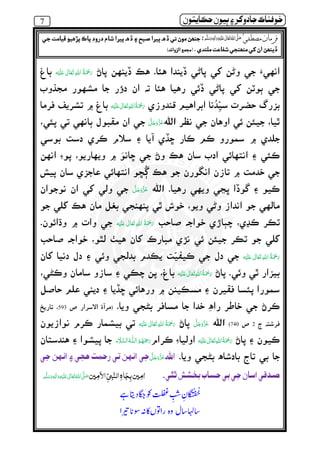 خوفناڪ جادوگر ۽ ٻيون حڪايتون 7
فرمانِ مصطفيٰ (صلى الله تعالى عليه واٰله وسلم): جنهن مون تي ڏهه ڀيرا صبح ۽ ڏهه ڀيرا شام درود پاڪ پڙهيو قيامت جي
ڏينهن ان کي منهنجي شفاعت ملندي۔ (مجمع الزوائد)
انهيءَ جي وڻن کي پاڻي ڏيندا هئا۔ هڪ ڏينهن پاڻ رَحْمَةُ اللهِ تَعَالىٰ عَلَيْه باغ
جي ٻوٽن کي پاڻي ڏئي رهيا هئا ته ان دؤر جا مشهور مجذوب
بزرگ حضرت سيِّدُنا ابراهيم قندوزي رَحْمَةُ اللهِ تَعَالىٰ عَلَيْه باغ ۾ تشريف فرما
ٿيا، جيئن ئي اوهان جي نظر الله عَزَّوَجَلَّ جي ان مقبول ٻانهي تي پئي،
جلدي ۾ سمورو ڪم ڪار ڇڏي آيا ۽ سلام ڪري دست بوسي
ڪئي ۽ انتهائي ادب سان هڪ وڻ جي ڇانوَ ۾ ويهاريو، پوءِ انهن
جي خدمت ۾ تازن انگورن جو هڪ ڇُڳو انتهائي عاجزي سان پيش
ڪيو ۽ گوڏا ڀڃي ويهي رهيا۔ الله عَزَّوَجَلَّ جي ولي کي ان نوجوان
مالهي جو انداز وڻي ويو، خوش ٿي پنهنجي بغل مان هڪ کلي جو
ٽڪر ڪڍي، چٻاڙي خواجه صاحب رَحْمَةُ اللهِ تَعَالىٰ عَلَيْه جي وات ۾ وڌائون۔
کلي جو ٽڪر جيئن ئي نڙي مبارڪ کان هيٺ لٿو، خواجه صاحب
رَحْمَةُ اللهِ تَعَالىٰ عَلَيْه جي دل جي ڪيفيت يڪدم بدلجي وئي ۽ دل دنيا کان
بيزار ٿي وئي، پاڻ رَحْمَةُ اللهِ تَعَالىٰ عَلَيْه باغ، پن چڪي ۽ سازو سامان وڪڻي،
سمورا پئسا فقيرن ۽ مسڪينن ۾ ورهائي ڇڏيا ۽ ديني علم حاصل
ڪرڻ جي خاطر راهِ خدا جا مسافر بڻجي ويا۔ (مرآة الاسرار ص 593، تاريخ
فرشته ج 2 ص 740) الله عَزَّوَجَلَّ پاڻ رَحْمَةُ اللهِ تَعَالىٰ عَلَيْه تي بيشمار ڪرم نوازيون
ڪيون ۽ پاڻ رَحْمَةُ اللهِ تَعَالىٰ عَلَيْه اولياءِ ڪرام رَحِمَهُمُ اللهُ السَّلَام جا پيشوا ۽ هندستان
جا بي تاج بادشاهه بڻجي ويا۔ الله عَزَّوَجَلَّ جي انهن تي رحمت هجي ۽ انهن جي
صدقي اسان جي بي حساب بخشش ٿئي۔ اٰمِين بِجَاهِ النَّبِيِّ الْاَمِين صلى الله تعالى عليه واٰله وسلم
خُفتگانِ شبِ غفلت کو جگا دیتا ہے
سالہا سال وہ راتوں کا نہ سونا تیرا